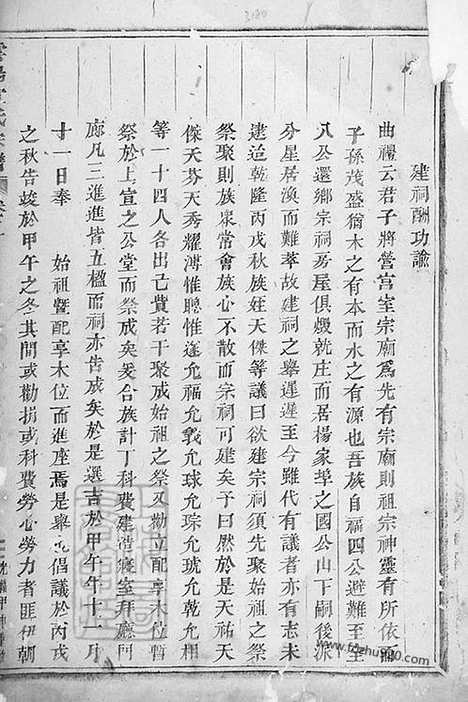 建祠酬功諭
曲禮云君子將營宮室宗廟爲先有宗廟則祖宗神靈有所依而
子孫茂盛猶木之有本而水之有源也吾族自福四公避難至
八公還鄉宗祠房屋俱燬就庄而居楊家筚之國公山下嗣後派
分星居渙而難萃故建祠之舉遲遲至今雖代有議者亦有志未
建迨乾隆丙戌秋族姪天傑等議曰欲建宗祠須先聚始祖之祭
祭聚則族衆常會族心不散而宗祠可建矣予曰然於是天祐天
傑天芬天秀耀溥惟聰惟逢允福允義允球允琮允琥允乾允相
等一十四人各出己貲若干聚成始祖之祭又勸立配享木位暫
祭於上宣之公堂而祭成矣爰合族計丁科費建造寢室拜廳門
廊凡三進進皆五楹而祠亦告成矣於是選吉於甲午年十二月
十一日奉 始祖暨配享木位而進座焉是舉也倡議於丙戌
之秋告竣於甲午之冬其間或勸捐或科費勞心勞力者匪伊朝
www.fdzhu910.com